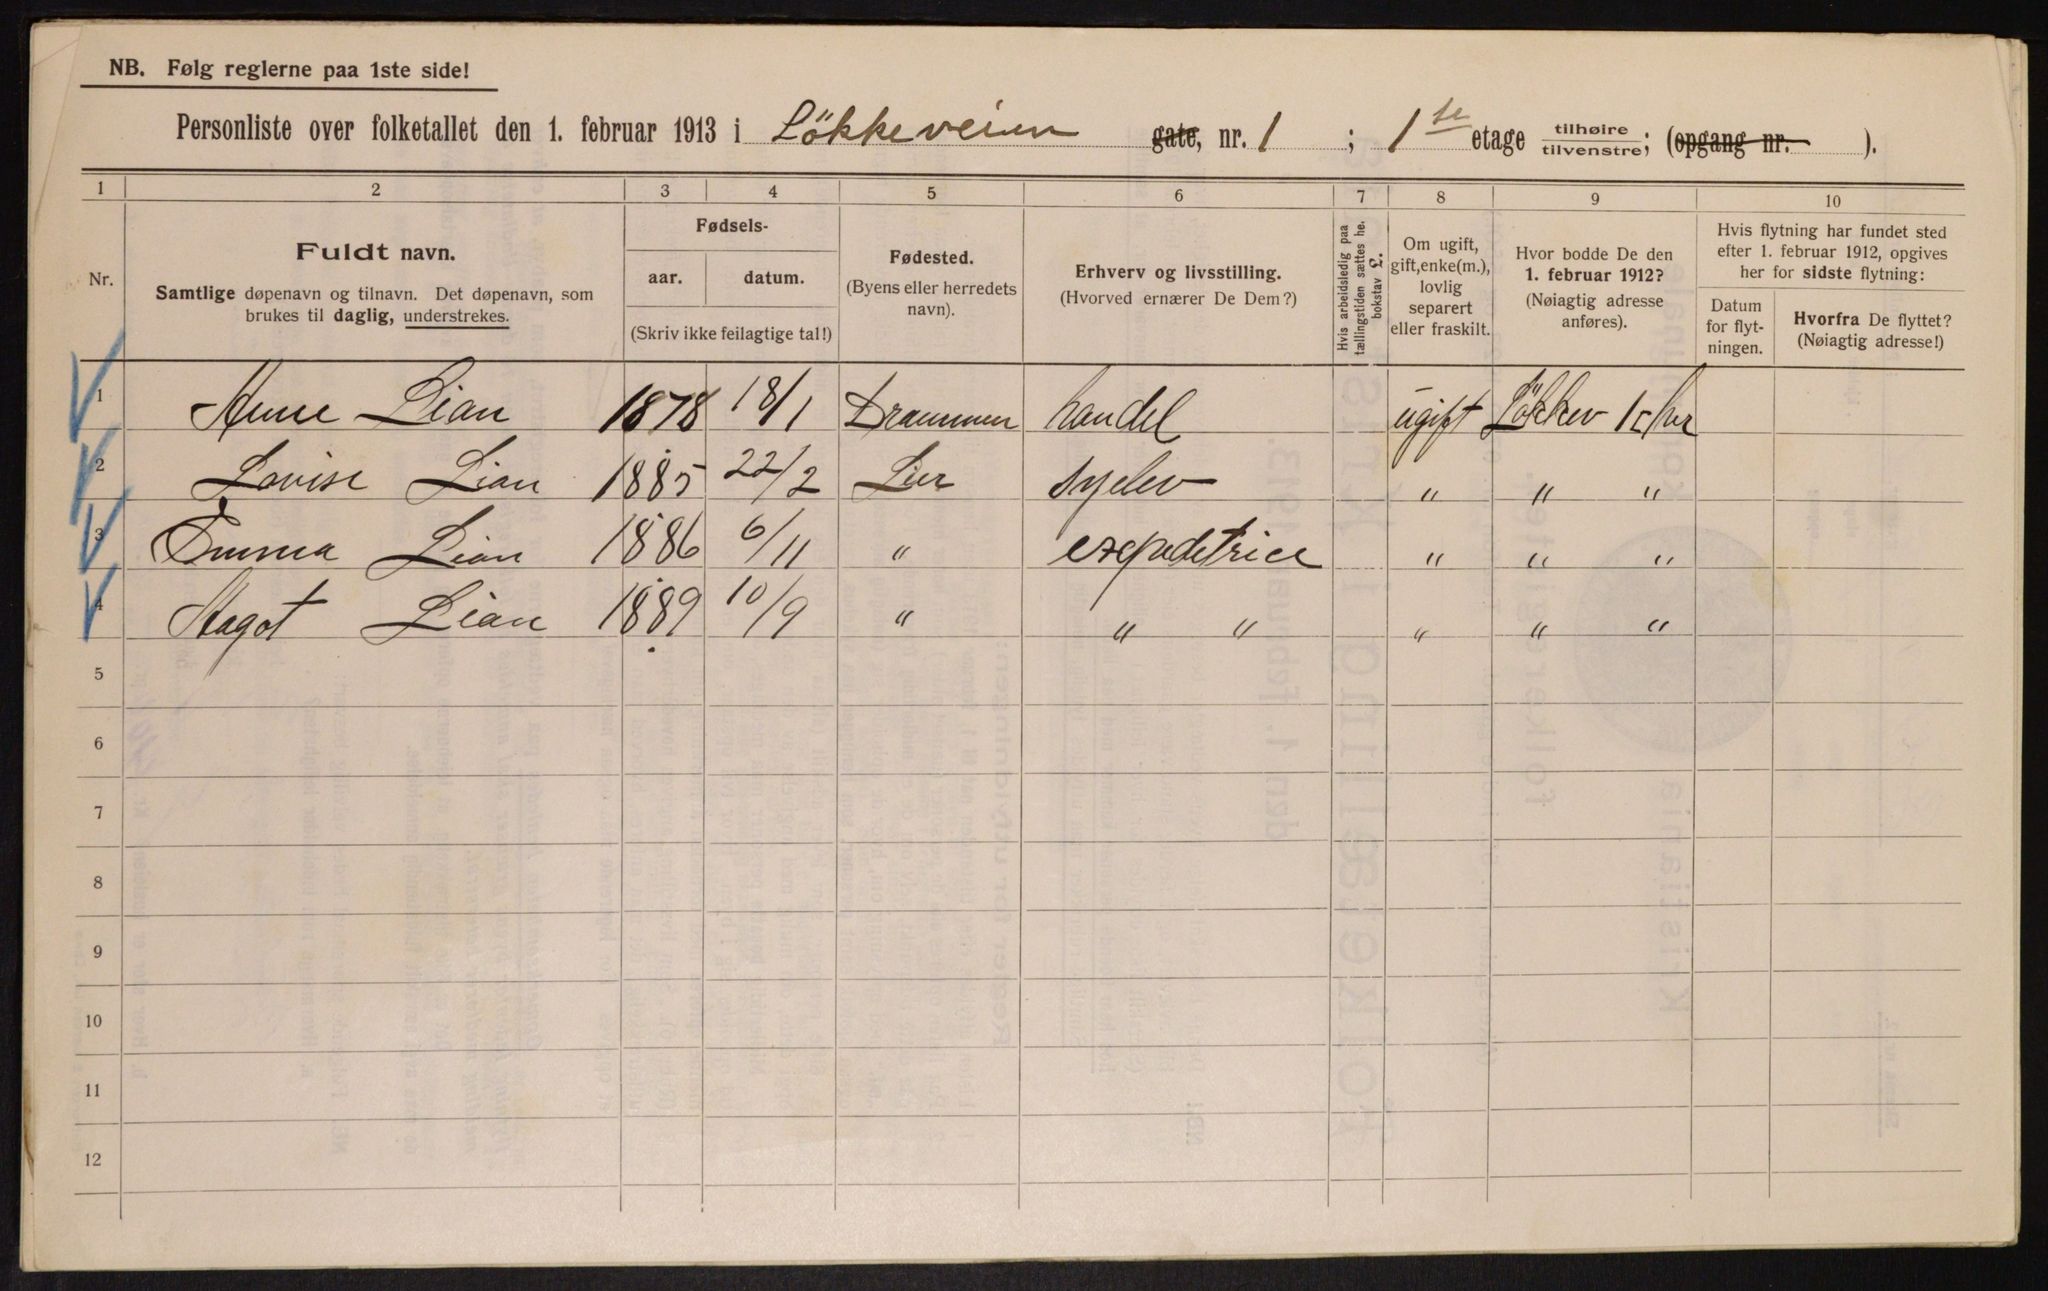 NB. Følg reglerne paa 1ste side!
Personliste over folketallet den 1. februar 1913 i Løkkeveien gate, nr. 1 ; 1ste etage tilhøire tilvenstre; (opgang nr. ).
1 2 3 4 5 6 7 8 9 10
Nr.
Fuldt navn.
Samtlige døpenavn og tilnavn. Det døpenavn, som
brukes til daglig, understrekes.
Fødsels-
aar. datum.
(Skriv ikke feilagtige tal!)
Fødested.
(Byens eller herredets
navn).
Erhverv og livsstilling.
(Hvorved ernærer De Dem?)
Hvis arbeidsledig paa
tællingstiden sættes he.
bokstav L.
Om ugift,
gift, enke(m.),
lovlig
separert
eller fraskilt.
Hvor bodde De den
1. februar 1912?
(Nøiagtig adresse
anføres).
Hvis flytning har fundet sted
efter 1. februar 1912, opgives
her for sidste flytning:
Datum
for flyt-
ningen.
Hvorfra De flyttet?
(Nøiagtig adresse!)
1 Anne Lian 1878 18/1 Drammen handel ugift Løkkev 1
2 Lovise Lian 1885 22/2 Lier syelev " " "
3 Emma Lian 1886 6/11 " exepedetrice " " "
4 Magot Lian 1889 10/9 " " " " " "
5
6
7
8
9
10
11
12